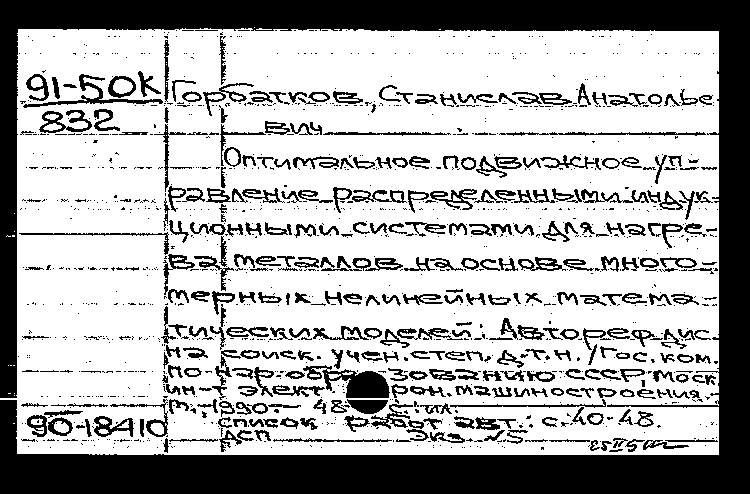 91-50К
832
Горбатков, Станислав Анатолье-
вич
Оптимальное подвижное уп-
равление распределенными индук-
ционными системами для нагре-
ва металлов на основе много-
мерных нелинейных матема-
тических моделей: Автореф. дис.
на соиск. учен. степ. д.т.н. / Гос. ком.
по нар. образованию СССР, Моск.
ин-т электрон. машиностроения. -
М., 1990. - 48 с.: ил.
90-18410
список работ авт.: с. 40-48.
ДСП Экз. №5